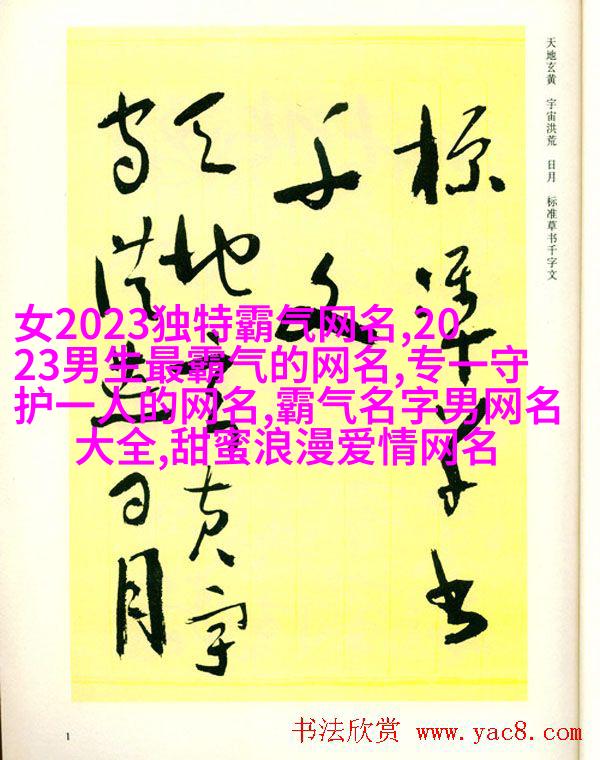 天地玄黄 宇宙洪荒 日月 标准草书千字文
标准草书
千文
天地玄黄宇
宙洪荒日月
女2023独特霸气网名,20
23男生最霸气的网名,专一守
护一人的网名,霸气名字男网名
大全,甜蜜浪漫爱情网名
1
书法欣赏 www.yac8.com